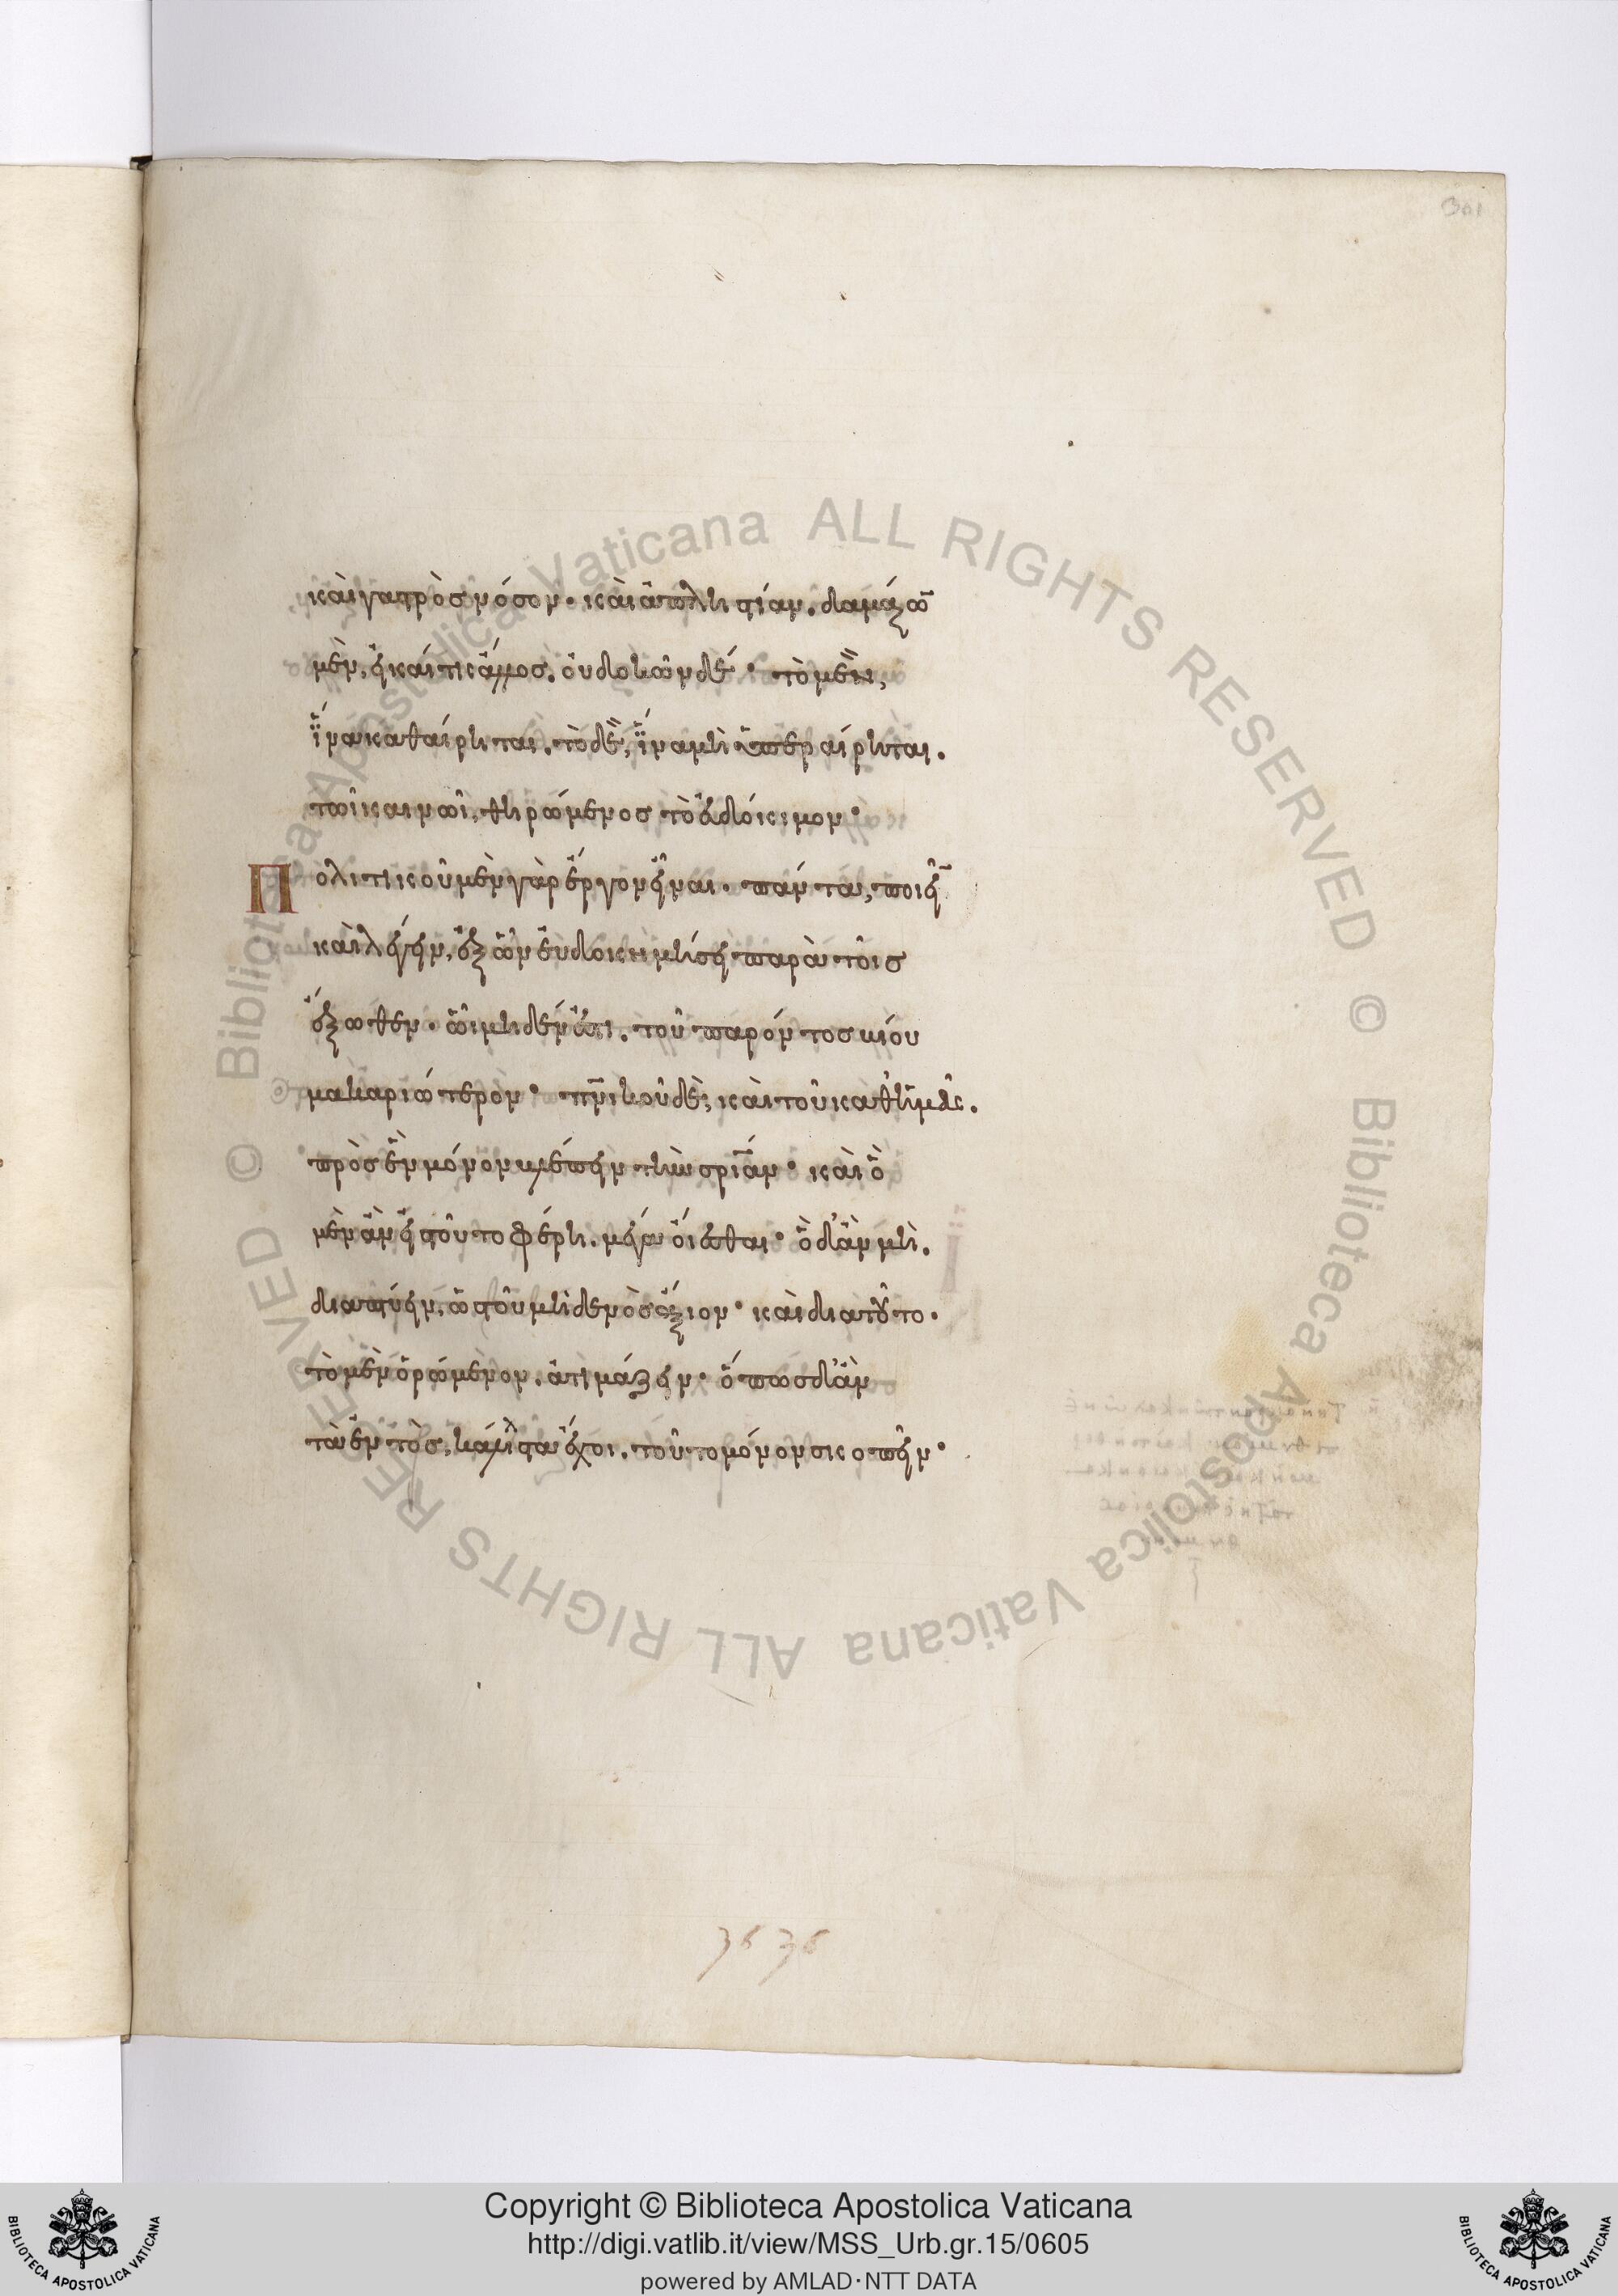 301
καὶ γαστρὸς νόσον· καὶ ἀπληστίαν. δαμάζω
μὲν, εἰ καί τις ἄλλος. οὐ δοκῶν δέ· τὸ μὲν,
ἵνα καθαίρηται. τὸ δὲ, ἵνα μὴ ὑπεραίρηται.
τῶι καινῶι, θηρώμενος τὸ εὐδόκιμον·
Πολιτικοῦ μὲν γὰρ ἔργον εἶναι. πάντα, ποιεῖν
καὶ λέγειν, ἐξ ὧν εὐδοκιμήσει παρὰ τοῖς
ἔξωθεν. ὧι μηδέν ἐστι. τοῦ παρόντος βίου
μακαριώτερον· πνικοῦ δὲ, καὶ τοῦ καθ' ἡμᾶς.
πρὸς ἓν μόνον βλέπειν τὴν σρίαν· καὶ ὃ
μὲν ἂν εἰς τοῦτο φέρηι. μέγα οἴεσθαι· ὃ δ' ἂν μὴ.
διαπτύειν, ὡς τοῦ μηδενὸς ἄξιον· καὶ διατοῦτο.
τὸ μὲν ὁρώμενον. ἀτιμάζειν· ὅπως δ' ἂν
τὰ ἐντὸς, κάλλιστα ἔχοι. τοῦτο μόνον σκοπεῖν·
3636
Copyright © Biblioteca Apostolica Vaticana
http://digi.vatlib.it/view/MSS_Urb.gr.15/0605
powered by AMLAD·NTT DATA
BIBLIOTECA APOSTOLICA VATICANA
BIBLIOTECA APOSTOLICA VATICANA
© Biblioteca Apostolica Vaticana ALL RIGHTS RESERVED
© Biblioteca Apostolica Vaticana ALL RIGHTS RESERVED